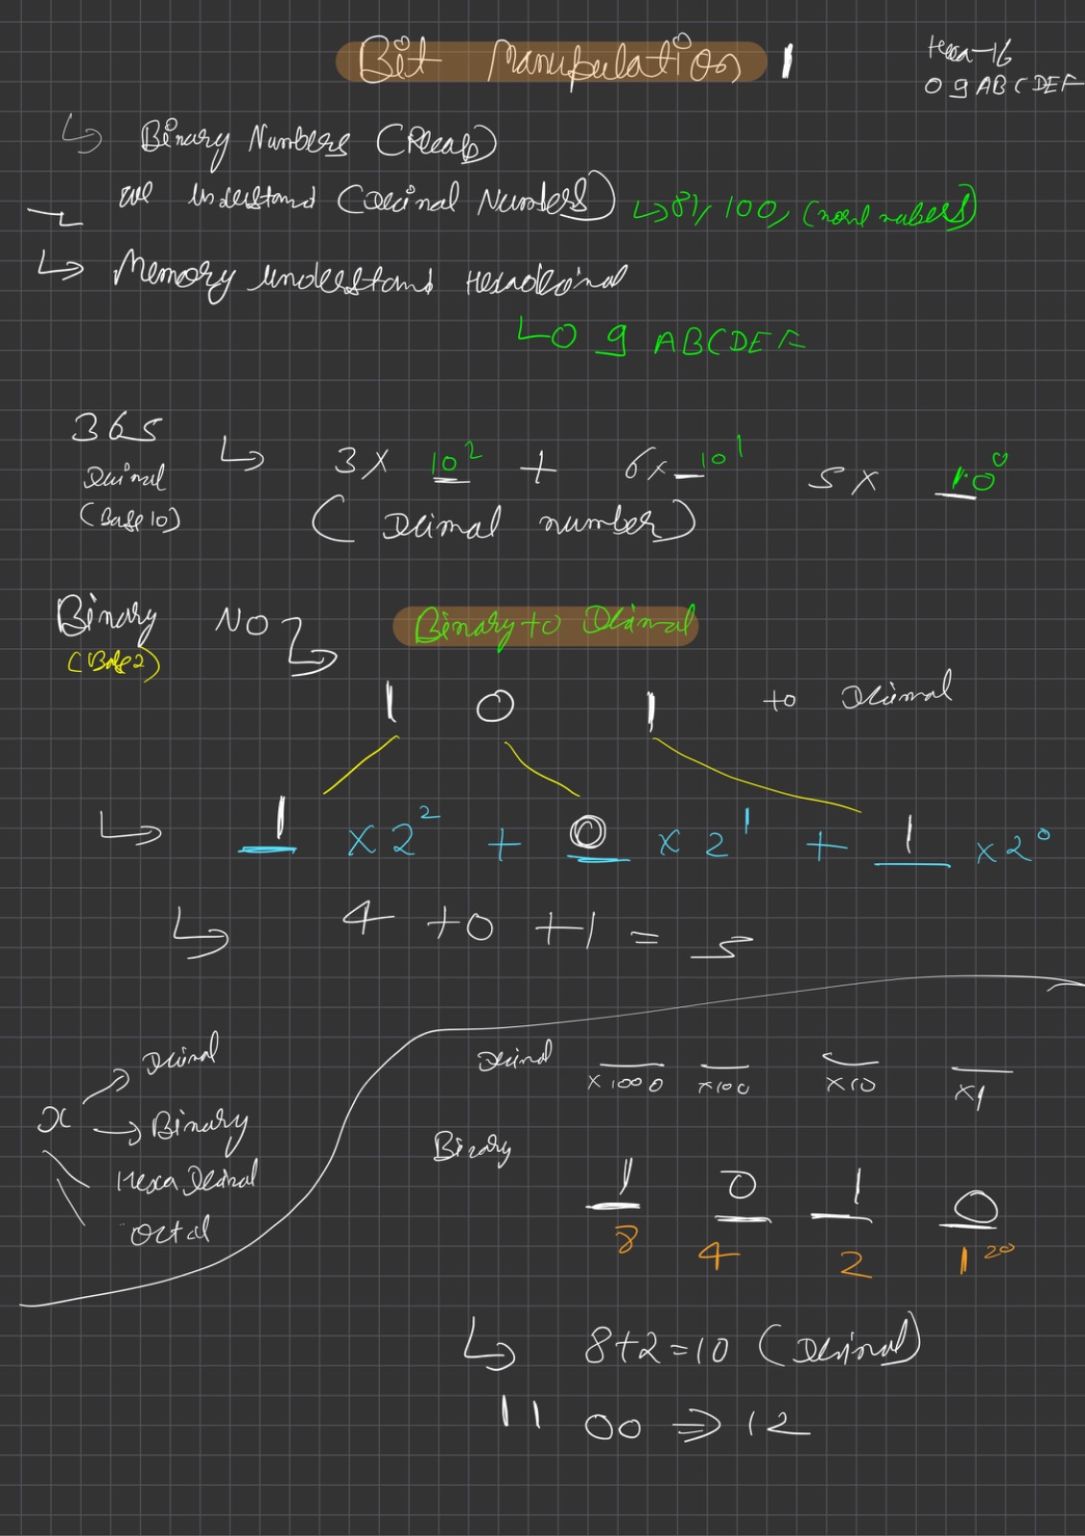 Bit Manipulation 1
Hexa-16
0 9 ABCDEF
↳ Binary Numbers (Recap)
we understand (Decimal Numbers) ↳ 81, 100, (normal numbers)
↳ Memory understand Hexadecimal
↳ 0 9 ABCDEF
365 ↳ 3 × 10² + 6 × 10¹ 5 × 10⁰
Decimal
(Base 10) (Decimal number)
Binary NO Binary to Decimal
(Base 2)
1 0 1 to Decimal
↳ 1 × 2² + 0 × 2¹ + 1 × 2⁰
↳ 4 + 0 + 1 = 5
x → Decimal
→ Binary
Hexa Decimal
Octal
Decimal ×1000 ×100 ×10 ×1
Binary
1 0 1 0
8 4 2 1 2⁰
↳ 8+2=10 (Decimal)
11 00 ⇒ 12